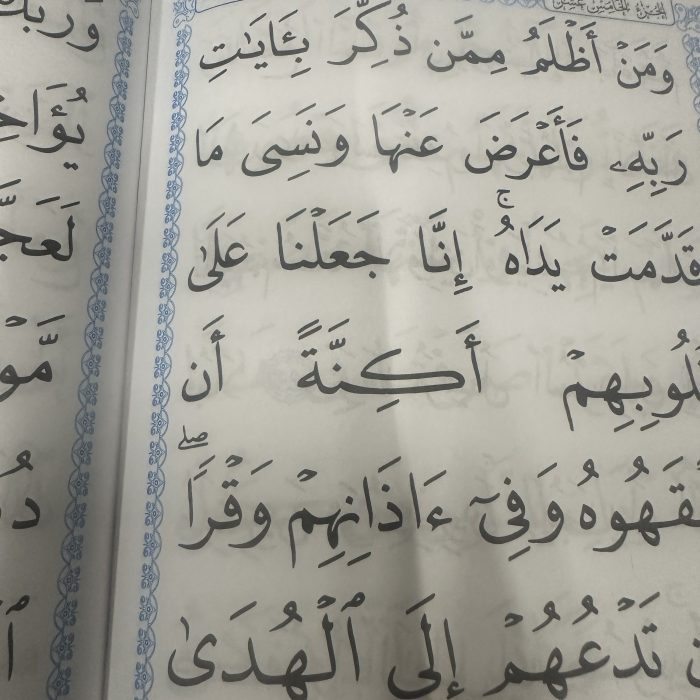 الجزء الخامس عشر
وَمَنْ أَظْلَمُ مِمَّن ذُكِّرَ بِـَٔايَٰتِ
رَبِّهِۦ فَأَعْرَضَ عَنْهَا وَنَسِىَ مَا
قَدَّمَتْ يَدَاهُ ۚ إِنَّا جَعَلْنَا عَلَىٰ
لُوبِهِمْ أَكِنَّةً أَن
قَهُوهُ وَفِىٓ ءَاذَانِهِمْ وَقْرًا ۖ
تَدْعُهُمْ إِلَى ٱلْهُدَىٰ
وَرَبُّكَ
يُؤَاخِ
لَعَجَّ
مَّوْ
دُ